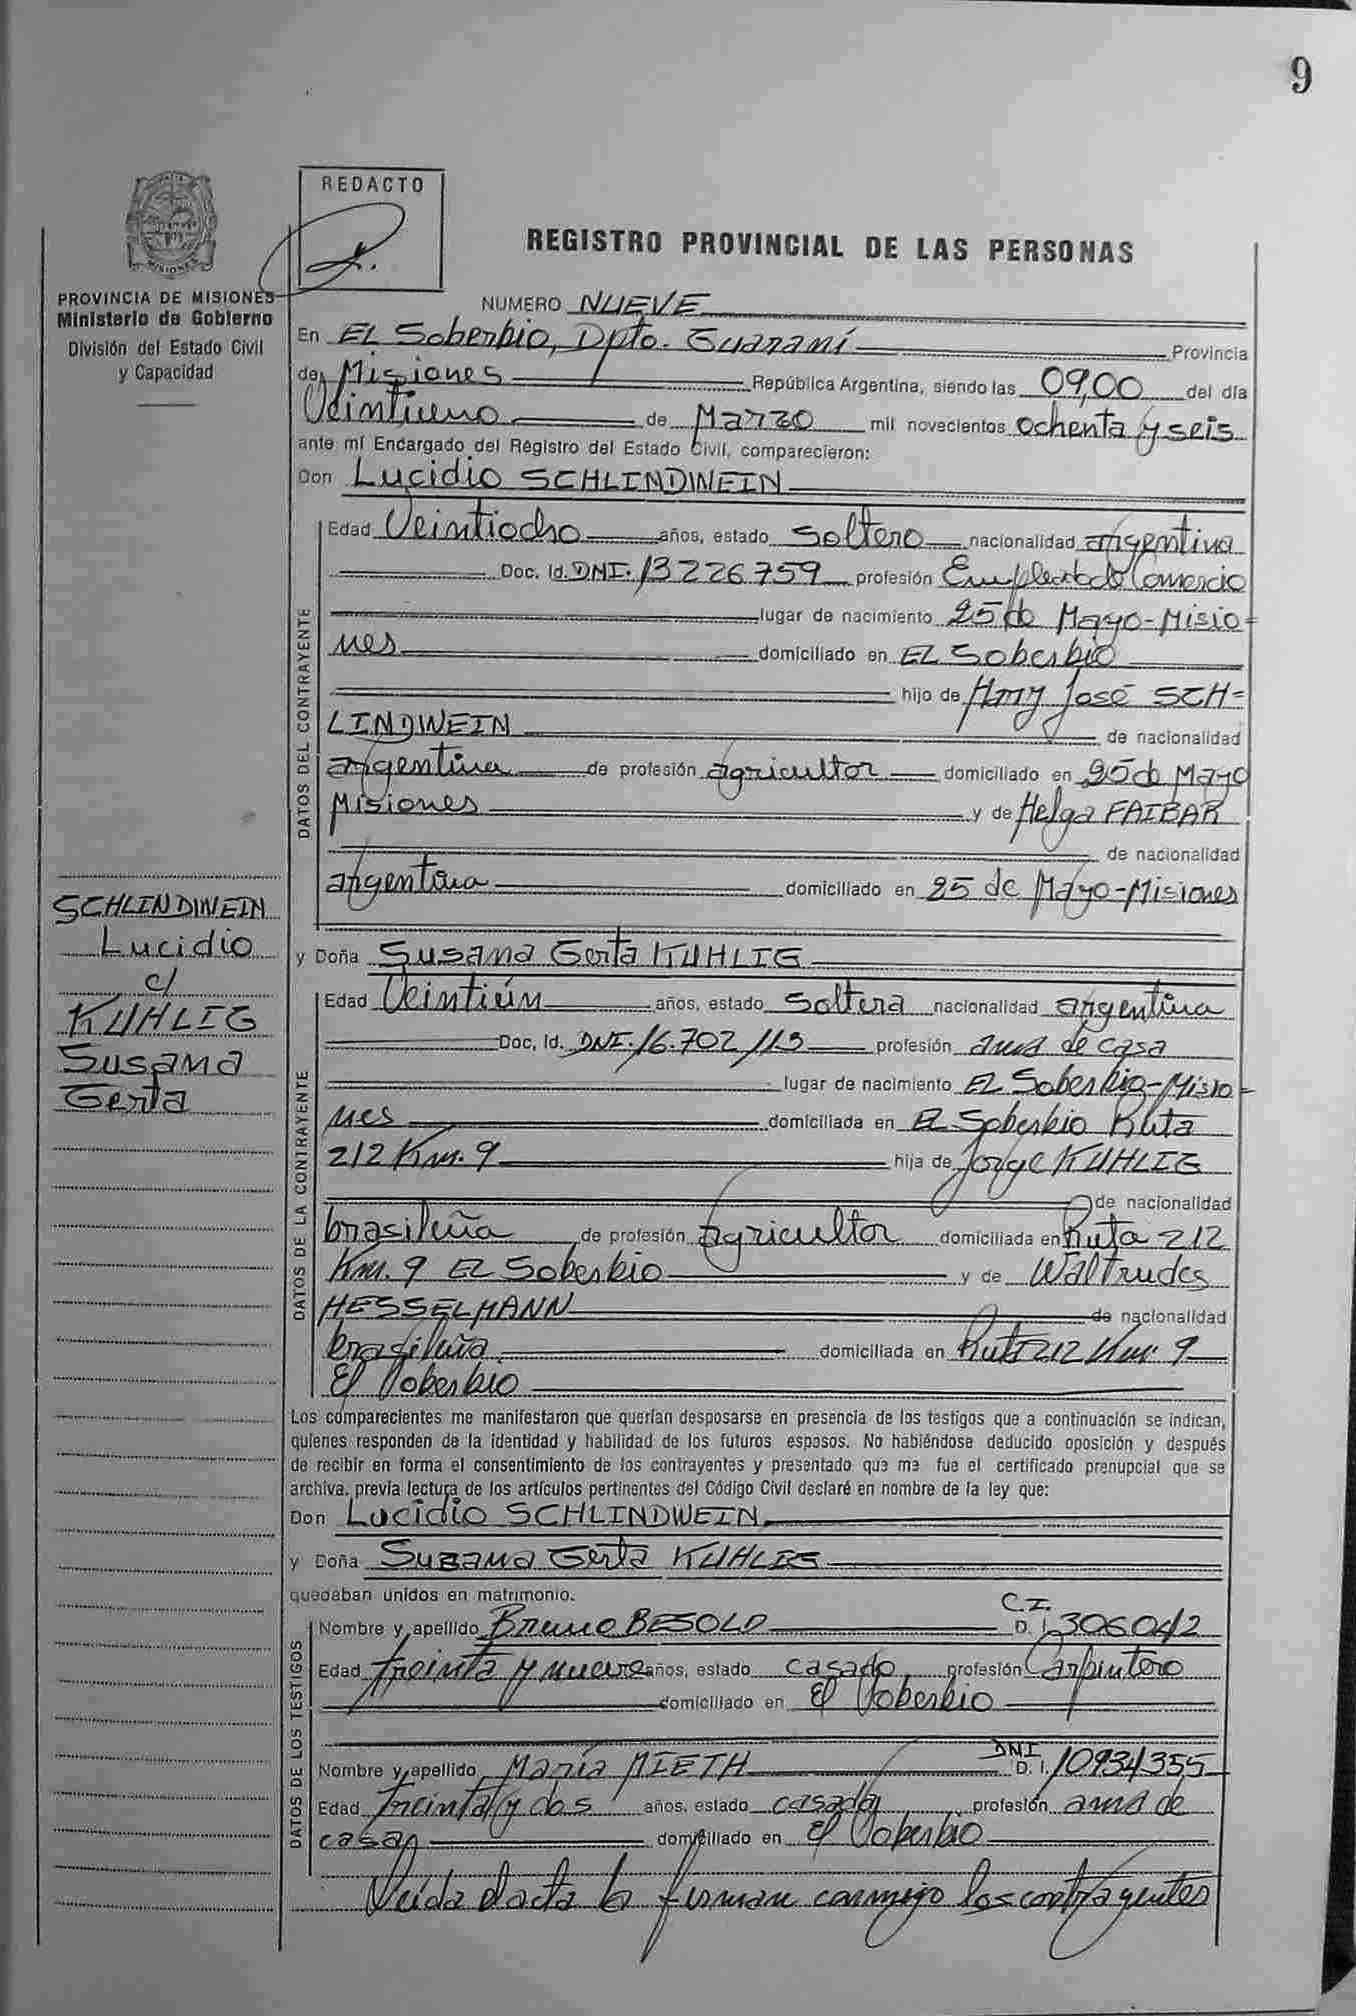 9
REDACTO
MISIONES
PROVINCIA DE MISIONES
Ministerio de Gobierno
División del Estado Civil
y Capacidad
REGISTRO PROVINCIAL DE LAS PERSONAS
NUMERO NUEVE
En EL Soberbio, Dpto. Guaraní Provincia
de Misiones República Argentina, siendo las 09,00 del día
Veintiuno de Marzo mil novecientos ochenta y seis
ante mí Encargado del Registro del Estado Civil, comparecieron:
Don Lucidio SCHLINDWEIN
DATOS DEL CONTRAYENTE
Edad Veintiocho años, estado soltero nacionalidad argentina
Doc. Id. DNI. 13226.759 profesión Empleado de Comercio
lugar de nacimiento 25 de Mayo-Misio=
nes domiciliado en EL Soberbio
hijo de José SCH=
LINDWEIN de nacionalidad
argentina de profesión agricultor domiciliado en 25 de Mayo
Misiones y de Helga FAIBAR
de nacionalidad
argentina domiciliado en 25 de Mayo-Misiones
SCHLINDWEIN
Lucidio
c/
KUHLIG
Susana
Gerta
y Doña Susana Gerta KUHLIG
DATOS DE LA CONTRAYENTE
Edad Veintiún años, estado soltera nacionalidad argentina
Doc. Id. DNI. 16.702.113 profesión ama de casa
lugar de nacimiento EL Soberbio-Misio=
nes domiciliada en EL Soberbio Ruta
212 Km. 9 hija de Jorge KUHLIG
de nacionalidad
brasileña de profesión agricultor domiciliada en Ruta 212
Km. 9 EL Soberbio y de Waltrudes
HESSELMANN de nacionalidad
brasileña domiciliada en Ruta 212 Km. 9
El Soberbio
Los comparecientes me manifestaron que querían desposarse en presencia de los testigos que a continuación se indican,
quienes responden de la identidad y habilidad de los futuros esposos. No habiéndose deducido oposición y después
de recibir en forma el consentimiento de los contrayentes y presentado que me fue el certificado prenupcial que se
archiva, previa lectura de los artículos pertinentes del Código Civil declaré en nombre de la ley que:
Don Lucidio SCHLINDWEIN
y Doña Susana Gerta KUHLIG
quedaban unidos en matrimonio.
DATOS DE LOS TESTIGOS
Nombre y apellido Bruno BESOLD C.I. D. I. 306042
Edad treinta y nueve años, estado casado profesión Carpintero
domiciliado en El Soberbio
Nombre y apellido María MIETH DNI D. I. 10934355
Edad treinta y dos años, estado casada profesión ama de
casa domiciliado en El Soberbio
Leída el acta la firman conmigo los contrayentes